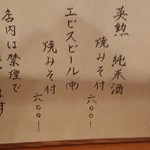 英勲 純米酒
焼みそ付
六〇〇ー
エビスビール(中)
焼みそ付
六〇〇ー
店内は禁煙で